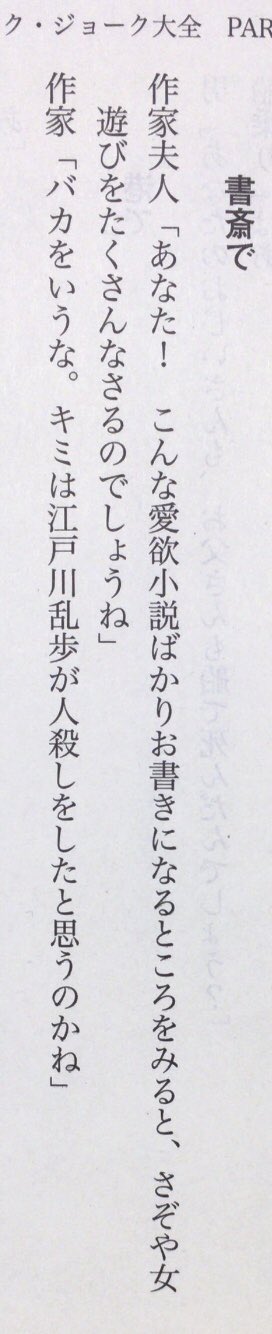 ク・ジョーク大全　PAR
書斎で
作家夫人「あなた！　こんな愛欲小説ばかりお書きになるところをみると、さぞや女
遊びをたくさんなさるのでしょうね」
作家「バカをいうな。キミは江戸川乱歩が人殺しをしたと思うのかね」